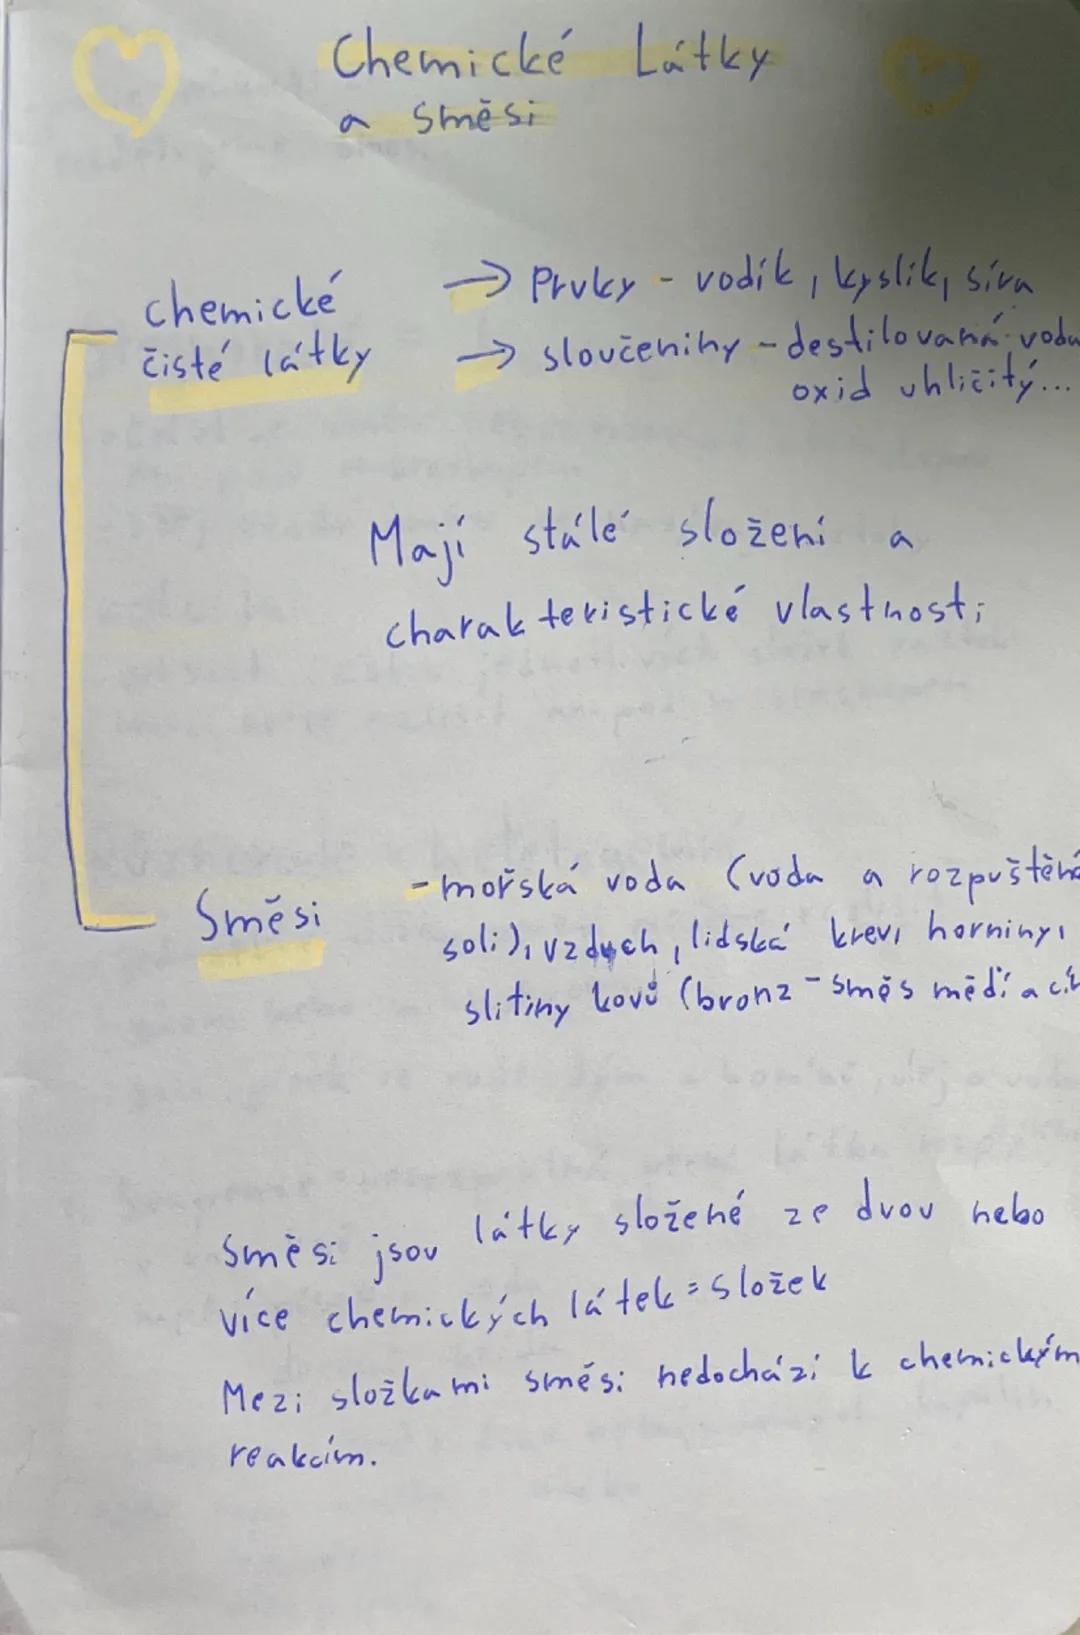 Chemické Látky
a směsi
chemické
čisté látky
→ Prvky - vodík, kyslík, síra
→ sloučeniny - destilovaná voda
oxid uhličitý...
Mají stálé složení a
charakteristické vlastnosti
Směsi
- mořská voda (voda a rozpuštěné
soli), vzduch, lidská krev, horniny,
slitiny kovů (bronz - směs mědi a cín
Směsi jsou látky složené ze dvou nebo
více chemických látek = složek
Mezi složkami směsi nedochází k chemickým
reakcím.